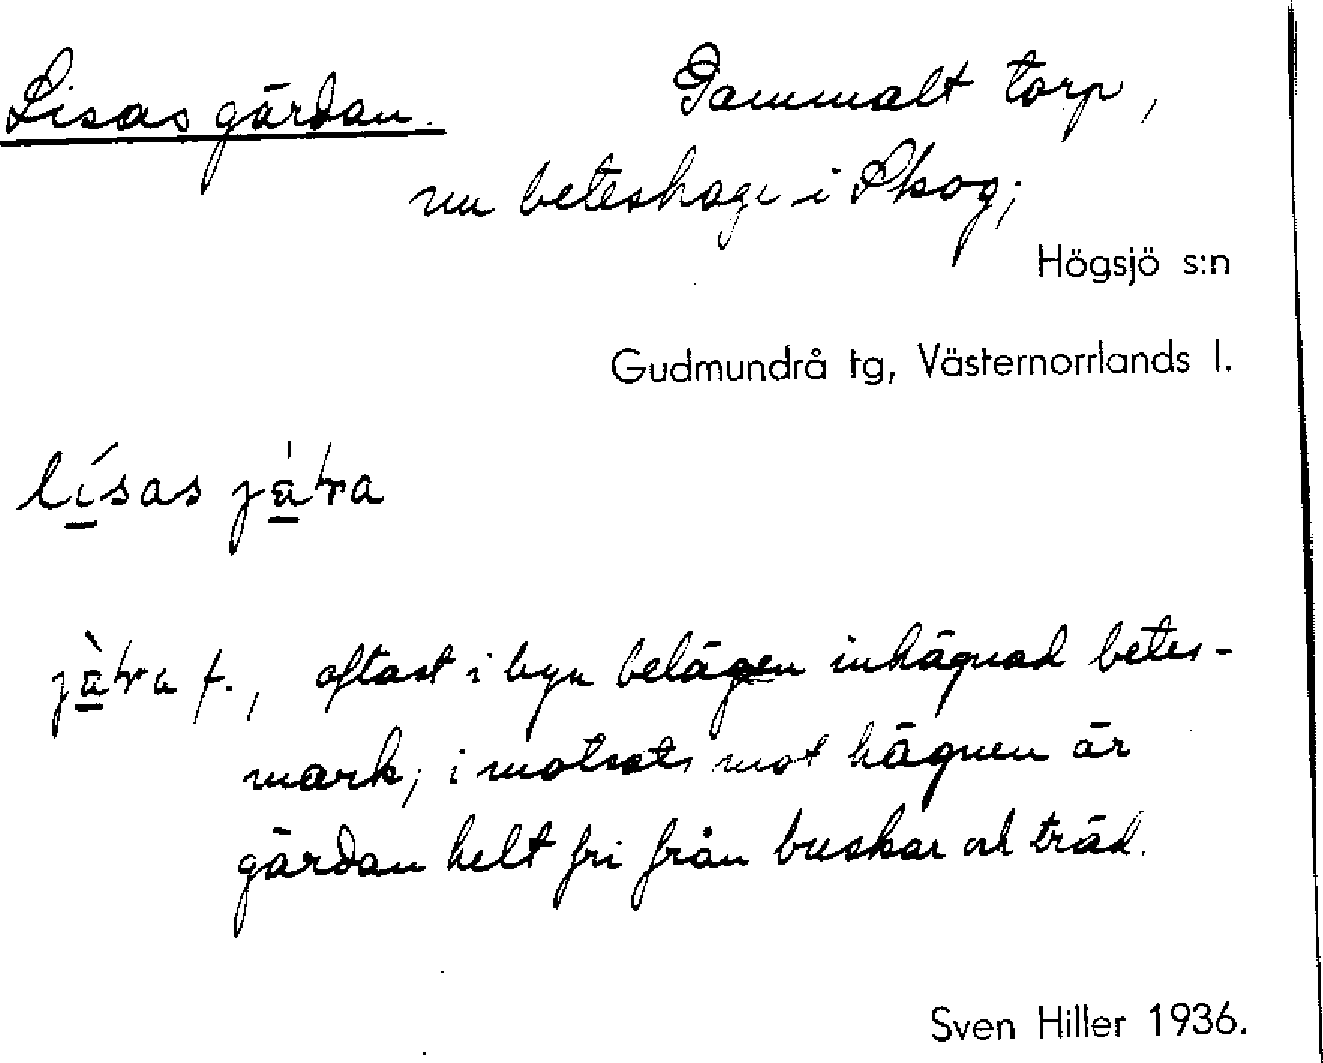 Lisas gärdan. Gammalt torp,
nu beteshage i Skog;
Högsjö s:n
Gudmundrå tg, Västernorrlands l.
lísas
f., oftast i byn belägen inhägnad betes-
mark; i motsats mot hägnen är
gärdan helt fri från buskar och träd.
Sven Hiller 1936.